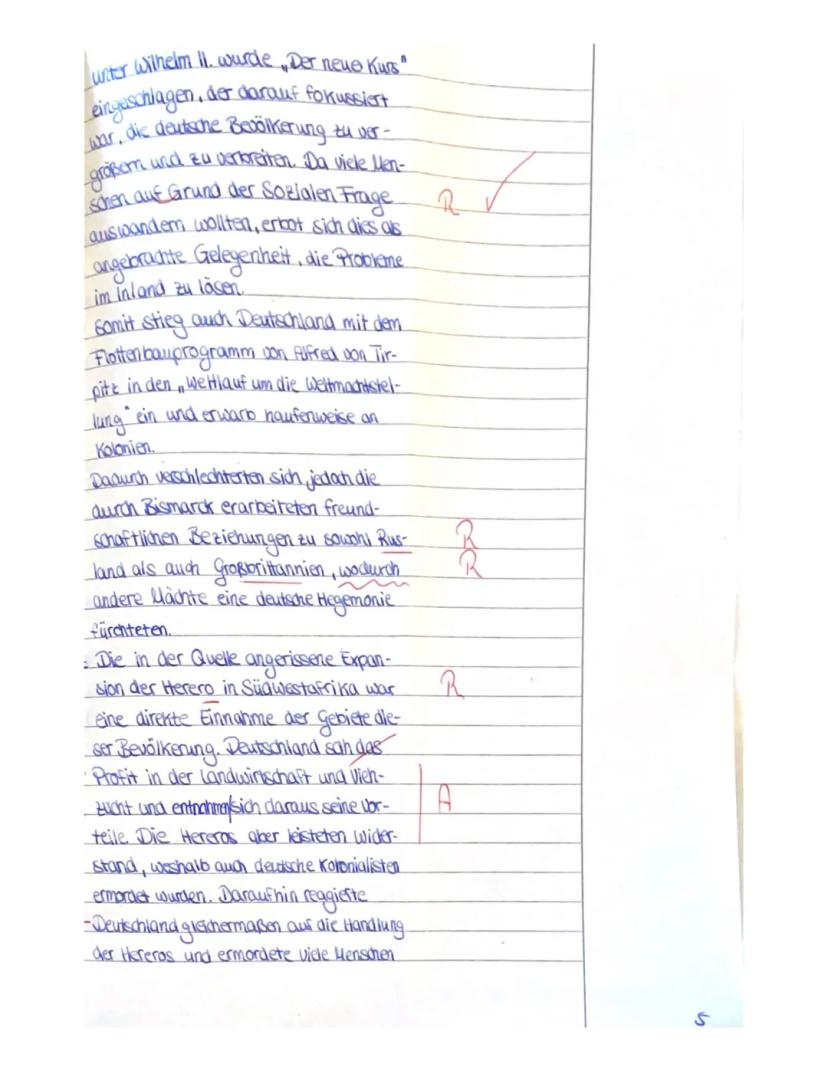 unter Wilhelm II. wurde „Der neue Kurs"
eingeschlagen, der darauf fokussiert
war, die deutsche Bevölkerung zu ver-
größern und zu verbreiten. Da viele Men-
schen auf Grund der Sozialen Frage
R ✓
auswandern wollten, erbot sich dies als
angebrachte Gelegenheit, die Probleme
im Inland zu lösen.
Somit stieg auch Deutschland mit dem
Flottenbauprogramm von Alfred von Tir-
pitz in den „Wettlauf um die Weltmachtstel-
lung" ein und erwarb haufenweise an
Kolonien.
Dadurch verschlechterten sich, jedoch die
durch Bismarck erarbeiteten freund-
schaftlichen Beziehungen zu sowohl Rus-
R
land als auch Großbrittannien, wodurch
R
andere Mächte eine deutsche Hegemonie
fürchteten.
Die in der Quelle angerissene Expan-
sion der Herero in Südwestafrika war
R
eine direkte Einnahme der Gebiete die-
ser Bevölkerung. Deutschland sah das
Profit in der Landwirtschaft und Vieh-
zucht und entnahmen sich daraus seine Vor-
A
teile. Die Hereros aber leisteten Wider-
stand, weshalb auch deutsche Kolonialisten
ermordet wurden. Daraufhin reagierte
Deutschland gleichermaßen auf die Handlung
der Hereros und ermordete viele Menschen
5